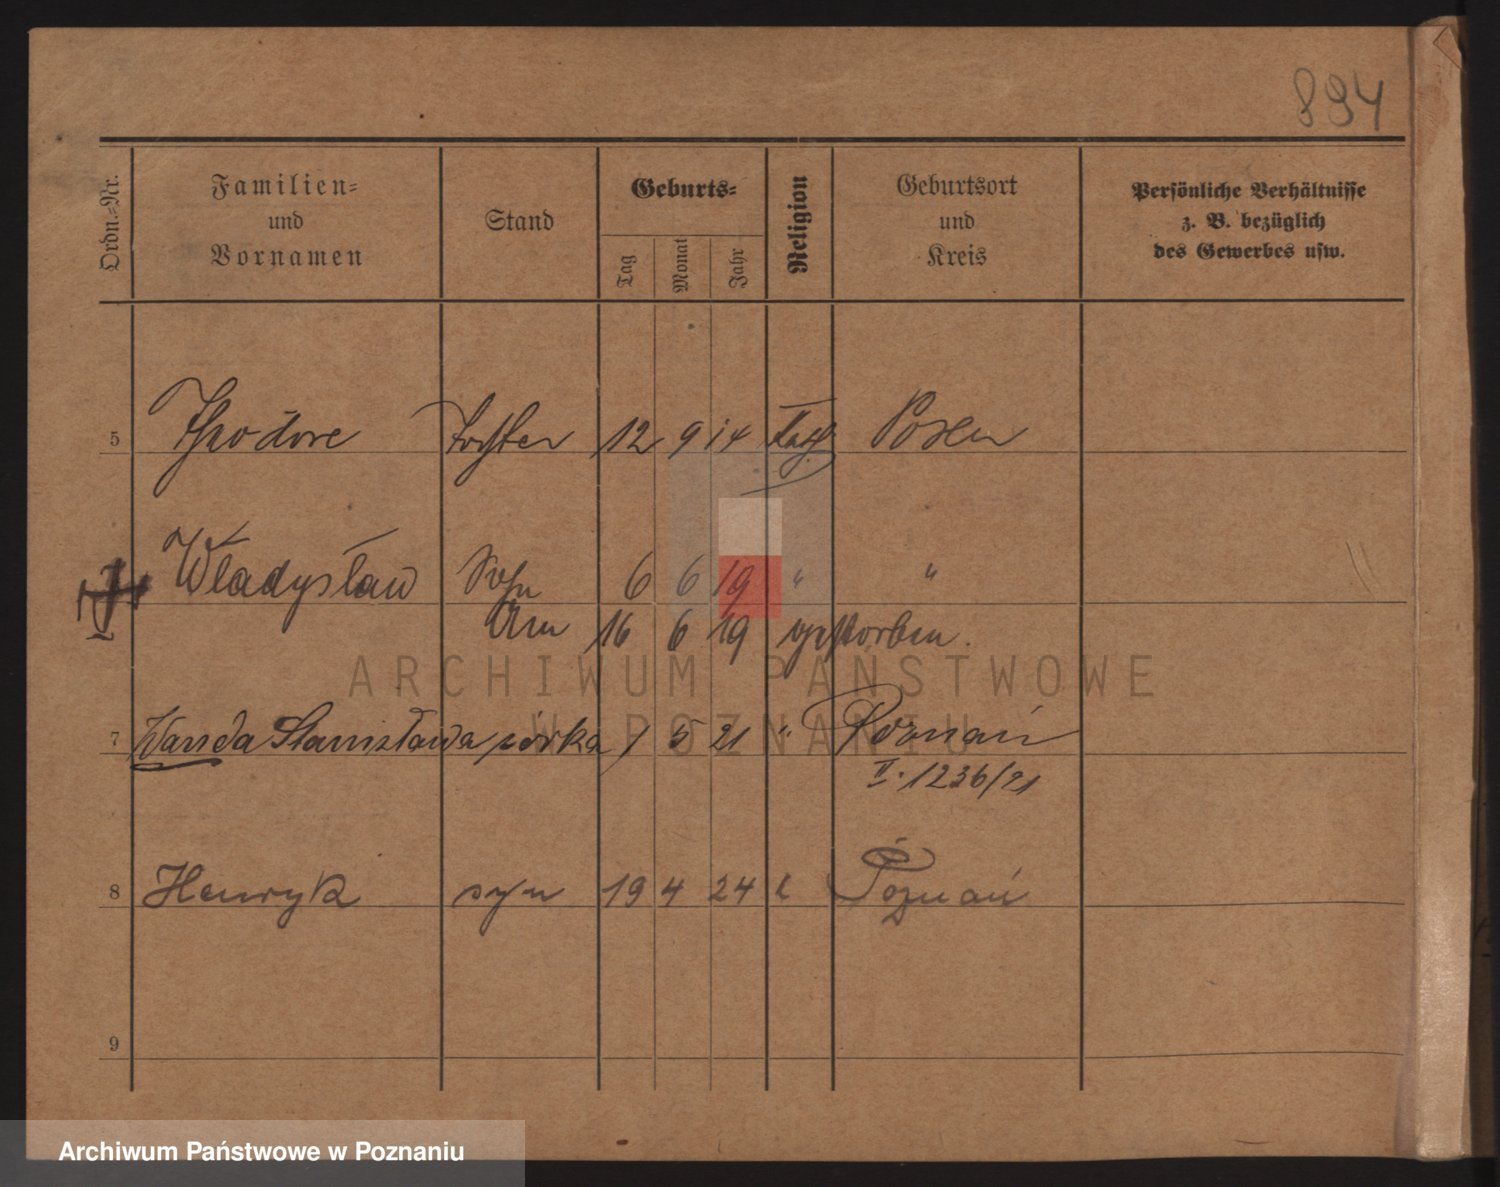 894
Ordn.=Nr.
Familien=
und
Vornamen
Stand
Geburts=
Tag
Monat
Jahr
Religion
Geburtsort
und
Kreis
Persönliche Verhältnisse
z. B. bezüglich
des Gewerbes usw.
5 Theodore Tochter 12 9 14 Kath. Posen
Władysław Sohn 6 6 19 " "
Am 16 6 19 gestorben.
ARCHIWUM PAŃSTWOWE
W POZNANIU
7 Wanda Stanisława córka 7 5 21 " Poznań
II. 1236/21
8 Henryk syn 19 4 24 k Poznań
9
Archiwum Państwowe w Poznaniu